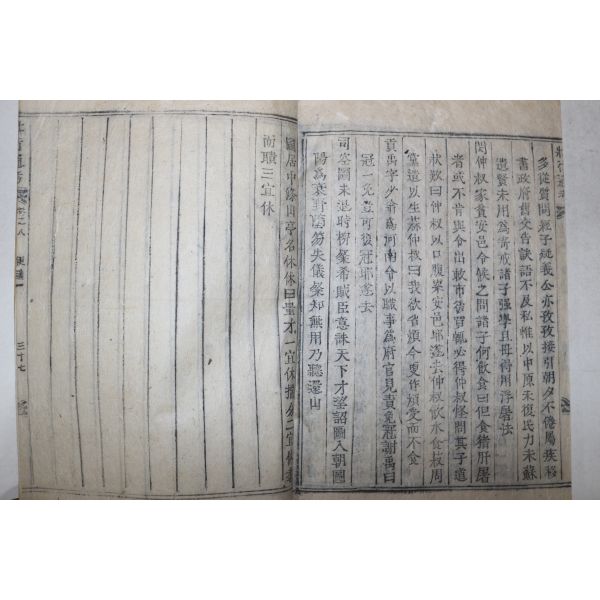 多從質問經子疑義公亦孜孜接引朝夕不倦屬疾秘
書政府舊交皆訣語不及私惟以中原未復民力未蘇
遺賢未用爲寄戒諸子强學且毋得用浮屠法
閔仲叔家貧安邑令候之問諸子何飮食曰但食猪肝屠
者或不肯與令出敕市吏買輒必得仲叔怪問其子道
狀歎曰仲叔以口腹累安邑耶遂去仲叔飮水食菽周
黨遺以生蒜仲叔曰我欲省煩今更作煩受而不食
貢禹字少翁爲河南令以職事爲府官見責免冠謝禹曰
冠一免豈可復冠耶遂去
司空圖未退時柳璨希賊臣意誅天下才望詔圖入朝圖
陽爲衰野墮笏失儀璨知無用乃聽還山
圖居中條山亭名休休曰量才一宜休揣分二宜休耄
而聵三宜休
三十七